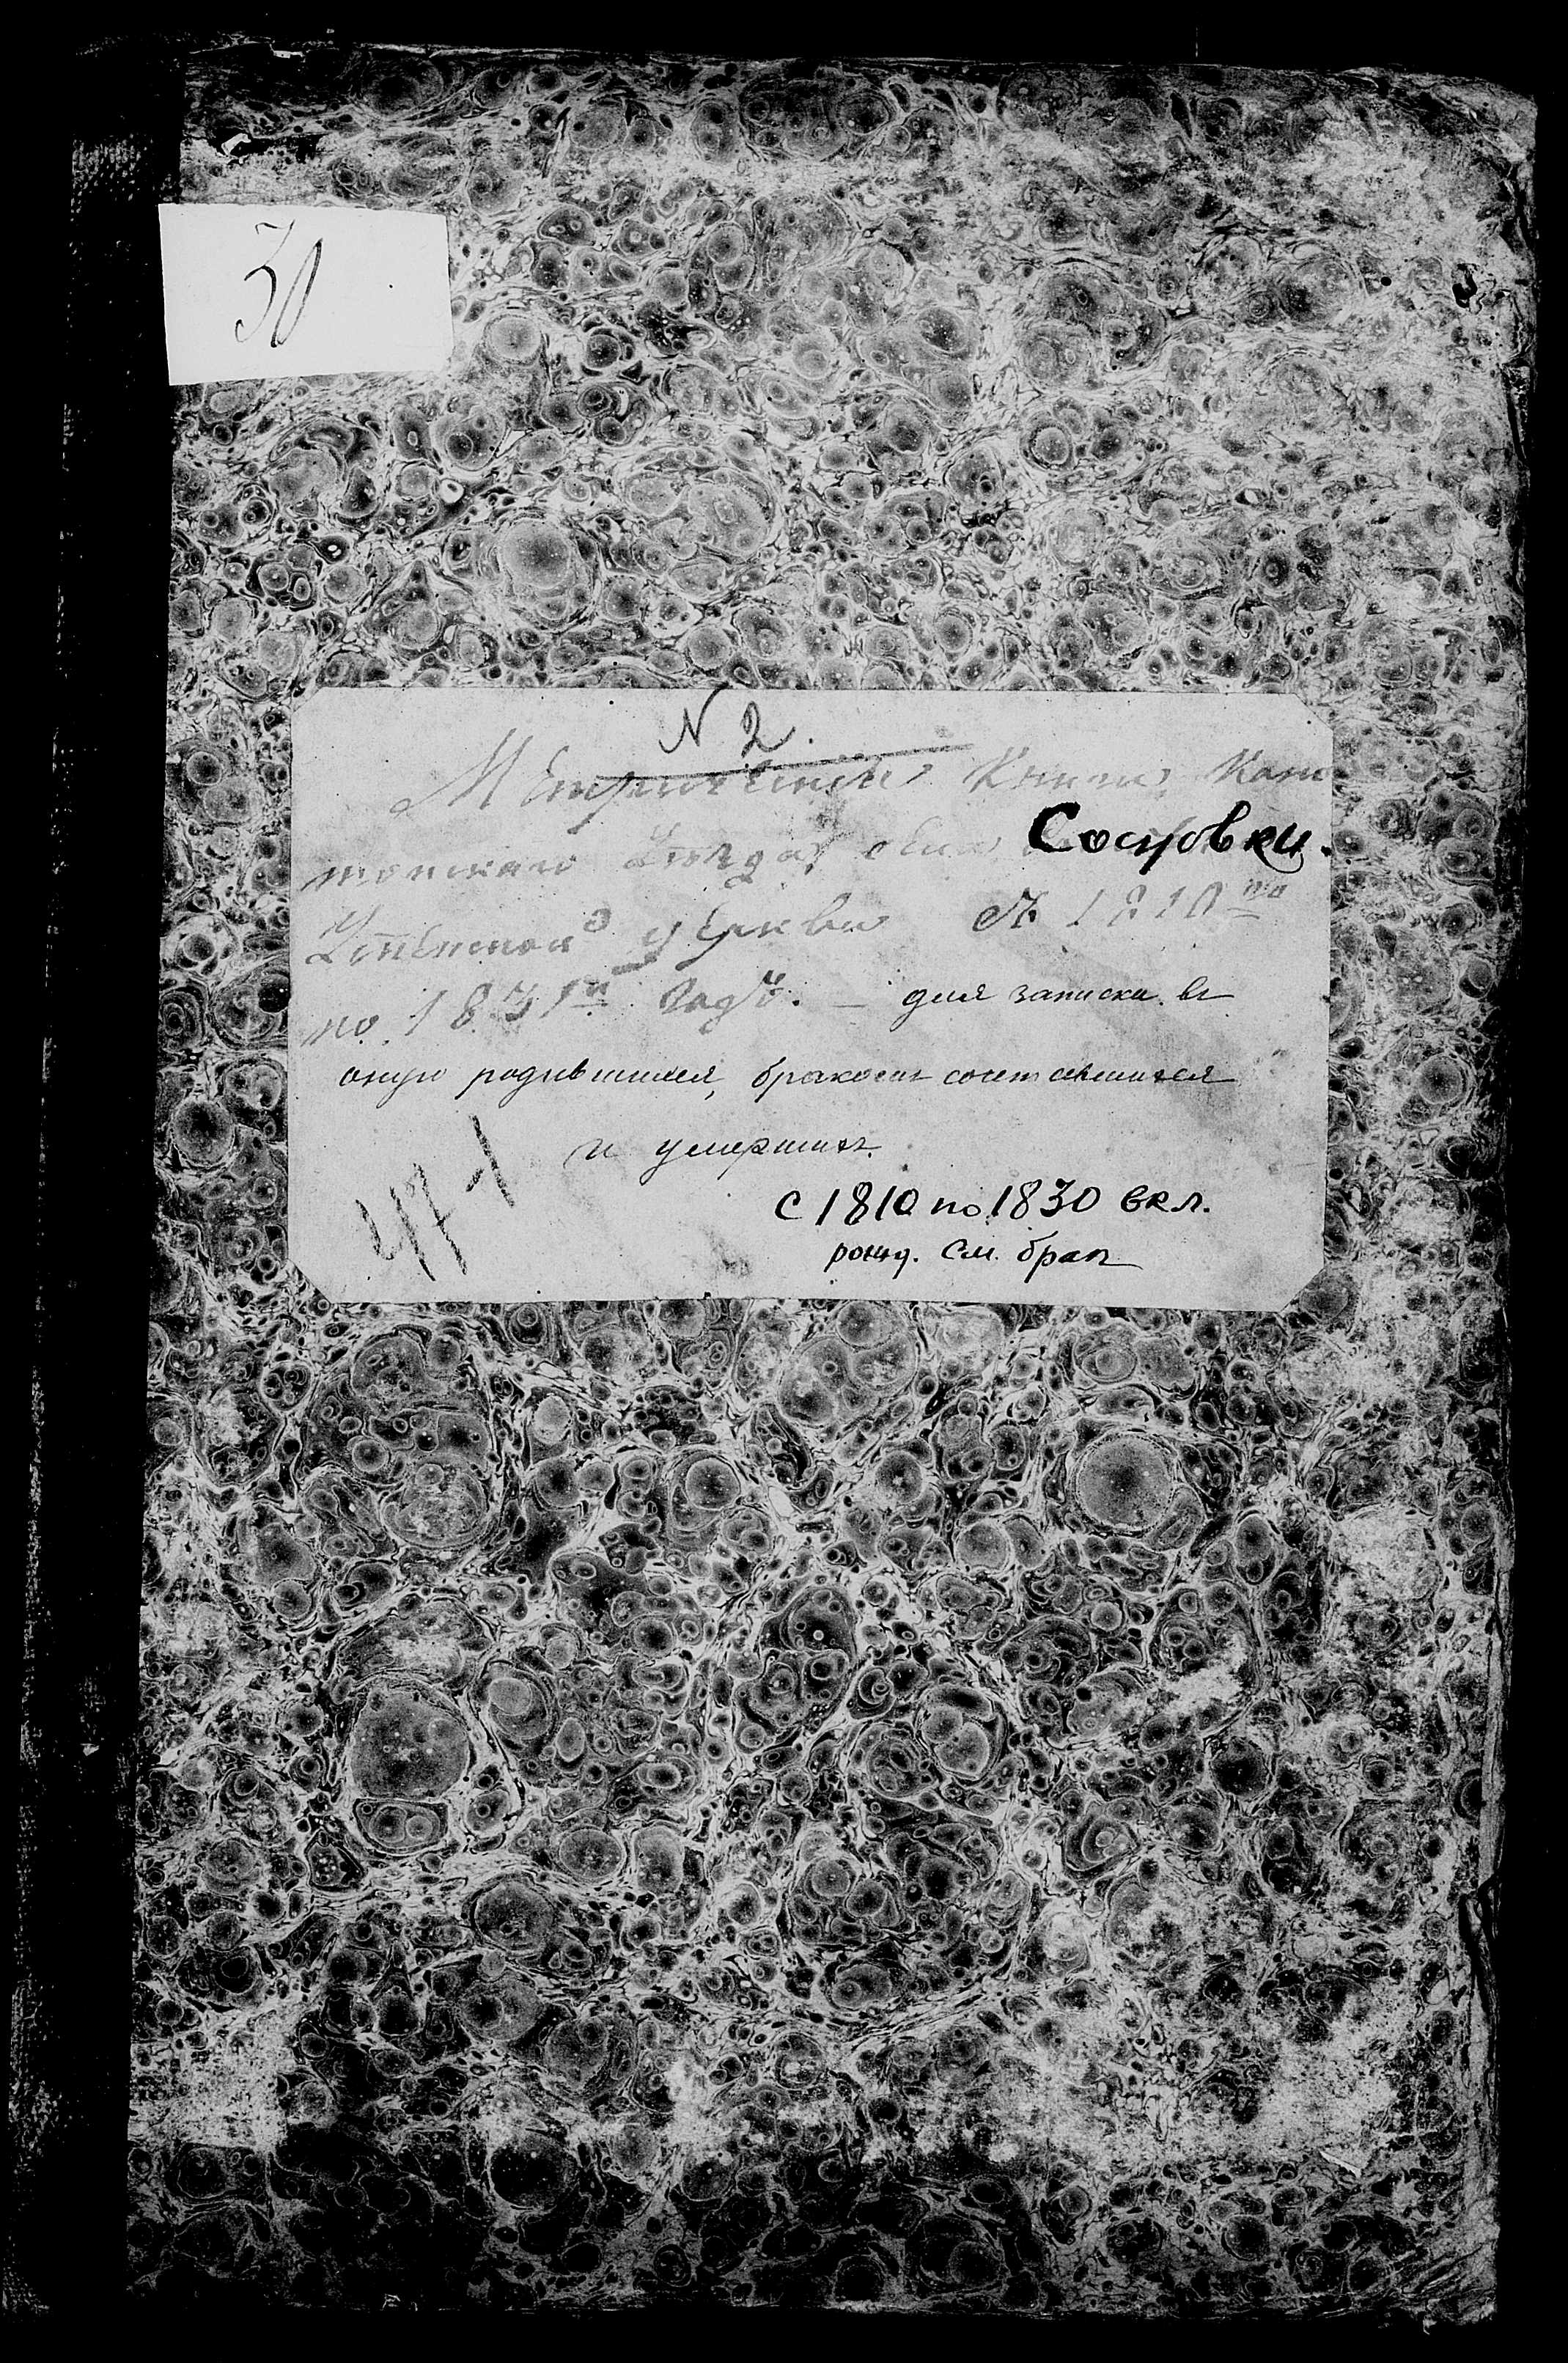 30
N 2.
Метрическая Книга Коно
топскаго Уезда села Сосновки.
Успенской церкви съ 1810го
по 1831й годъ. — для записки въ
оную родившихся, бракомъ сочетавшихся
и умершихъ.
с 1810 по 1830 вкл.
рожд. см. брак